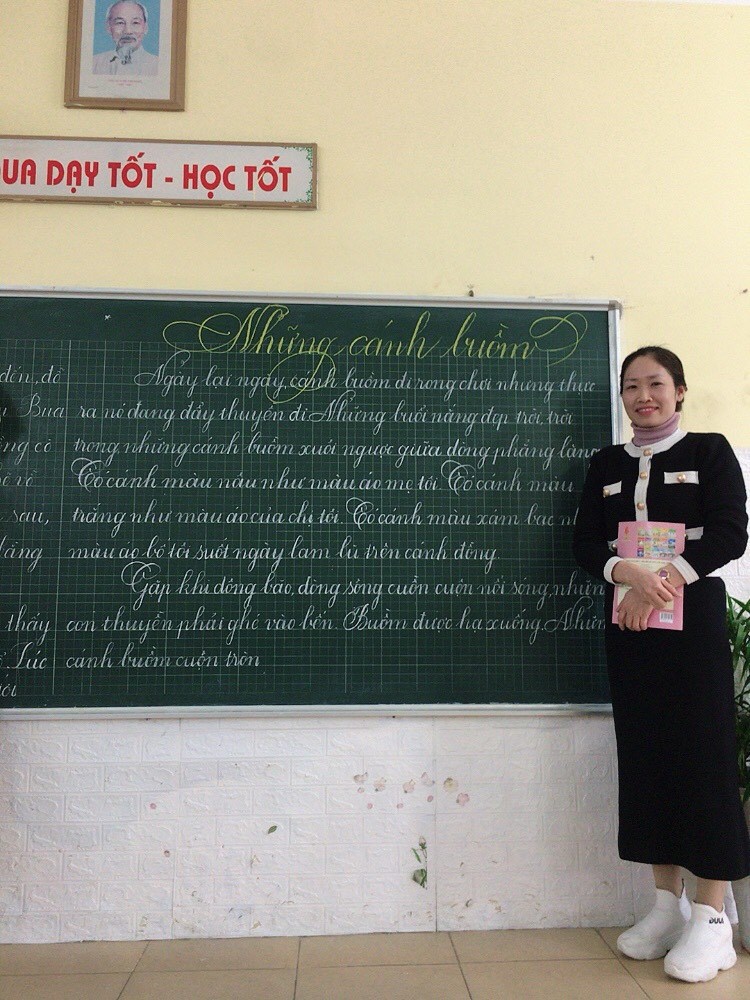 ĐUA DẠY TỐT - HỌC TỐT
Những cánh buồm
đến, đỗ
Bua
sau,
thấy
Lúc
Ngày lại ngày, cánh buồm đi rong chơi nhưng thực
ra nó đang đẩy thuyền đi. Những buổi nắng đẹp trời, trời
trong những cánh buồm xuôi ngược giữa dòng phẳng lặng
Có cánh màu nâu như màu áo mẹ tôi. Có cánh màu
trắng như màu áo của chị tôi. Có cánh màu xám bạc
màu áo bố tôi suốt ngày lam lũ trên cánh đồng.
Gặp khi dông bão, dòng sông cuồn cuộn nổi sóng, những
con thuyền phải ghé vào bến. Buồm được hạ xuống. Những
cánh buồm cuộn tròn